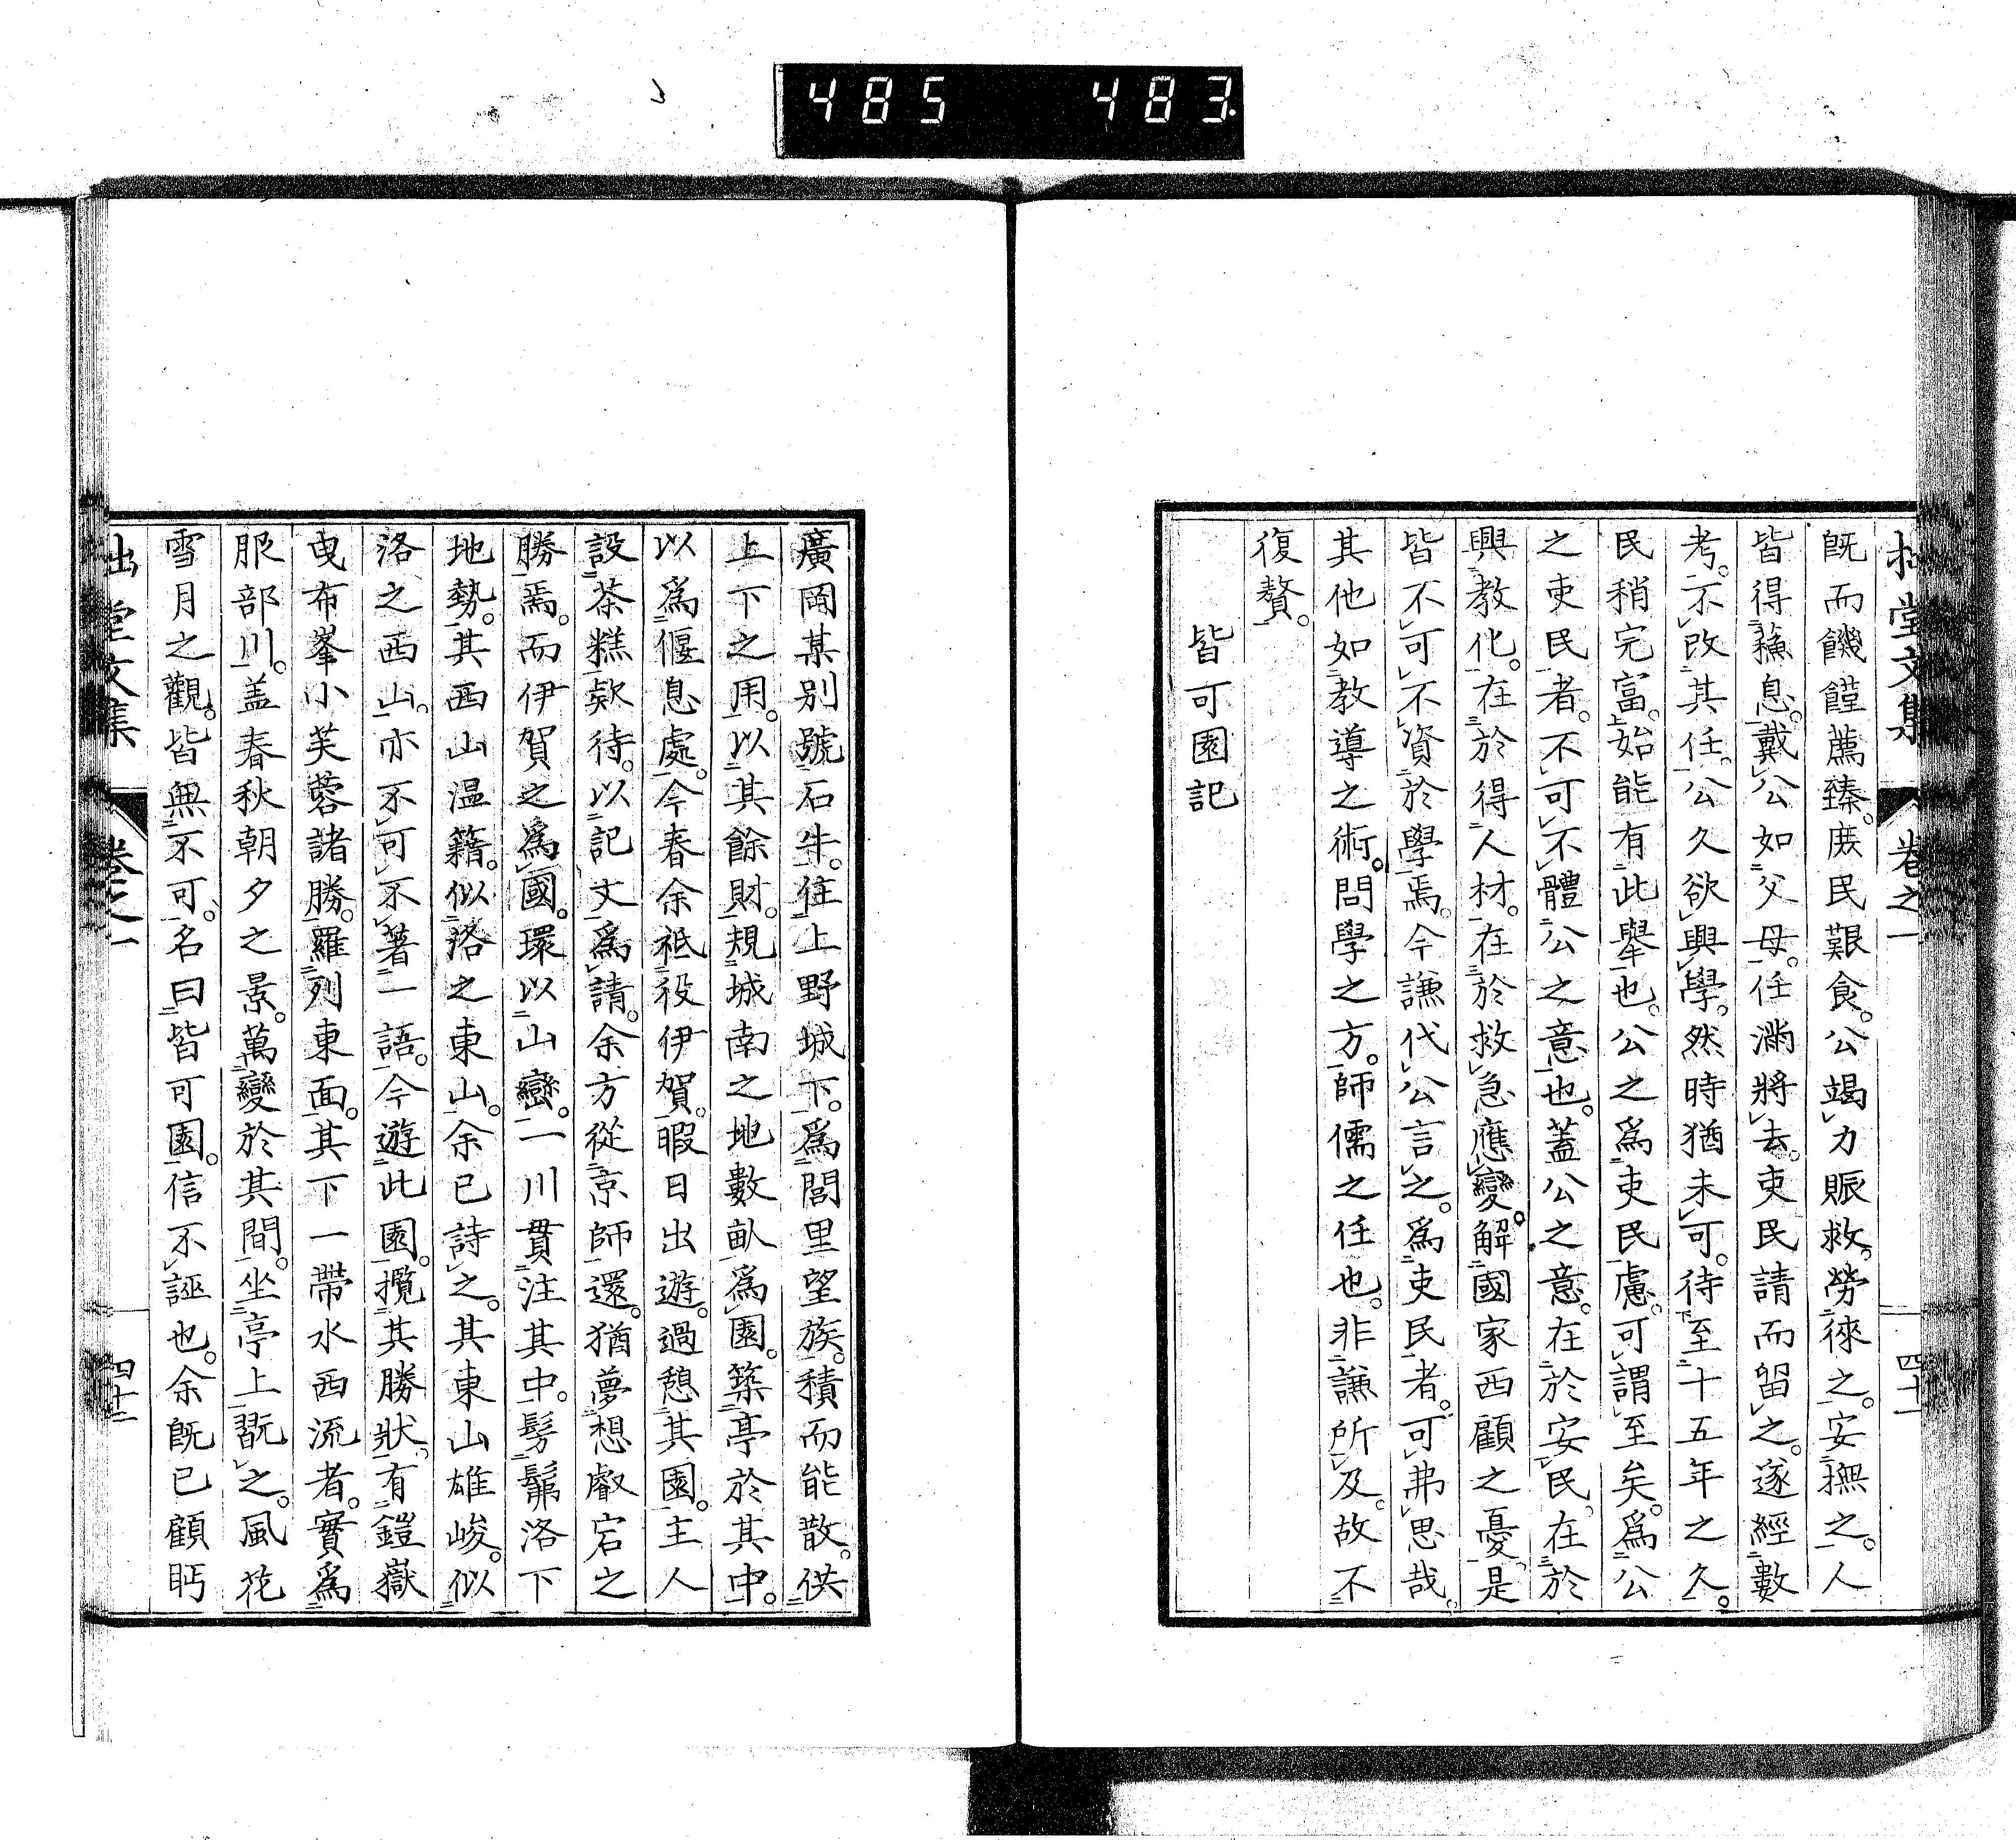 485 483
拙堂文集 卷之一 四十一
既而饑饉薦臻。庶民艱食。公竭力賑救。勞徠之。安撫之。人
皆得蘇息。戴公如父母。任滿將去。吏民請而留之。遂經數
考。不改其任。公久欲興學。然時猶未可。待至十五年之久。
民稍完富。始能有此擧也。公之爲吏民慮。可謂至矣。爲公
之吏民者。不可不體公之意也。蓋公之意。在於安民。在於
興教化。在於得人材。在於救急應變。解國家西顧之憂。是
皆不可不資於學焉。今謙代公言之。爲吏民者。可弗思哉。
其他如教導之術。問學之方。師儒之任也。非謙所及。故不
復贅。
皆可園記
廣岡某別號石牛。住上野城下。爲閭里望族。積而能散。供
上下之用。以其餘財。規城南之地數畝爲園。築亭於其中。
以爲偃息處。今春余祗役伊賀。暇日出遊。過憩其園。主人
設茶糕欵待。以記文爲請。余方從京師還。猶夢想叡宕之
勝焉。而伊賀之爲國。環以山巒。一川貫注其中。髣髴洛下
地勢。其西山温籍。似洛之東山。余已詩之。其東山雄峻。似
洛之西山。亦不可不著一語。今遊此園。攬其勝狀。有鎧嶽
曳布峯小芙蓉諸勝。羅列東面。其下一帶水西流者。實爲
服部川。盖春秋朝夕之景。萬變於其間。坐亭上翫之。風花
雪月之觀。皆無不可。名曰皆可園。信不誣也。余既已顧眄
拙堂文集 卷之一 四十二